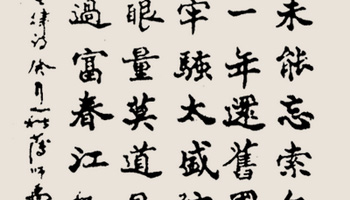 未能忘索
一年還舊國
牢騷太盛防
眼量莫道昆
過富春江
律詩